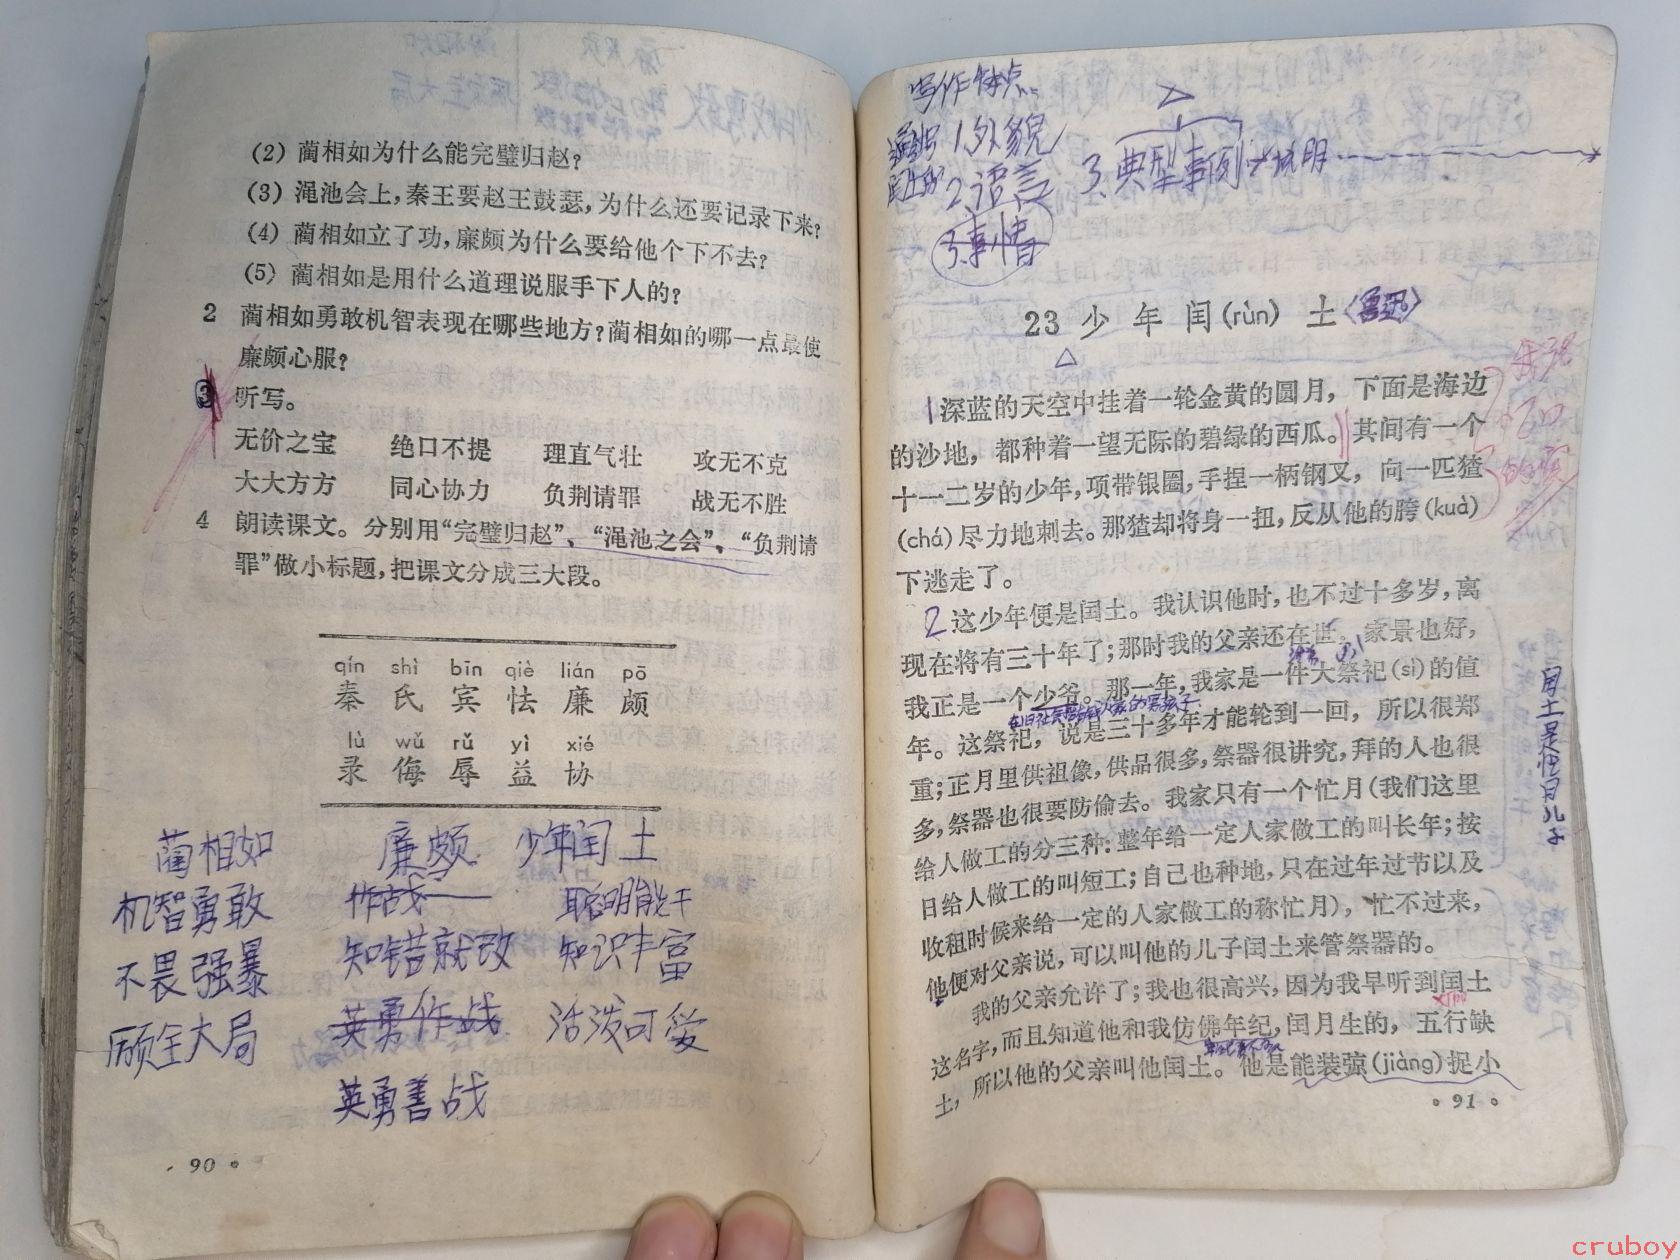 (2) 蔺相如为什么能完璧归赵？
(3) 渑池会上，秦王要赵王鼓瑟，为什么还要记录下来？
(4) 蔺相如立了功，廉颇为什么要给他个下不去？
(5) 蔺相如是用什么道理说服手下人的？
2 蔺相如勇敢机智表现在哪些地方？蔺相如的哪一点最使
廉颇心服？
3 听写。
无价之宝 绝口不提 理直气壮 攻无不克
大大方方 同心协力 负荆请罪 战无不胜
4 朗读课文。分别用“完璧归赵”、“渑池之会”、“负荆请
罪”做小标题，把课文分成三大段。
qín shì bīn qiè lián pō
秦 氏 宾 怯 廉 颇
lù wǔ rǔ yì xié
录 侮 辱 益 协
蔺相如 廉颇 少年闰土
机智勇敢 作战 聪明能干
不畏强暴 知错就改 知识丰富
顾全大局 英勇作战 活泼可爱
英勇善战
· 90 ·
写作特点
1.外貌
2.语言
3.典型事例 说明
3.事情
23 少年闰(rùn)土 〈鲁迅〉
1 深蓝的天空中挂着一轮金黄的圆月，下面是海边
的沙地，都种着一望无际的碧绿的西瓜。其间有一个
十一二岁的少年，项带银圈，手捏一柄钢叉，向一匹猹
(chá)尽力地刺去。那猹却将身一扭，反从他的胯(kuà)
下逃走了。
2 这少年便是闰土。我认识他时，也不过十多岁，离
现在将有三十年了；那时我的父亲还在世，家景也好，
我正是一个少爷。那一年，我家是一件大祭祀(sì)的值
在旧社会指有钱人家的男孩子
年。这祭祀，说是三十多年才能轮到一回，所以很郑
重；正月里供祖像，供品很多，祭器很讲究，拜的人也很
多，祭器也很要防偷去。我家只有一个忙月(我们这里
给人做工的分三种：整年给一定人家做工的叫长年；按
日给人做工的叫短工；自己也种地，只在过年过节以及
收租时候来给一定的人家做工的称忙月)，忙不过来，
他便对父亲说，可以叫他的儿子闰土来管祭器的。
我的父亲允许了；我也很高兴，因为我早听到闰土
这名字，而且知道他和我仿佛年纪，闰月生的，五行缺
土，所以他的父亲叫他闰土。他是能装弶(jiàng)捉小
· 91 ·
闰土是忙月儿子
cruboy